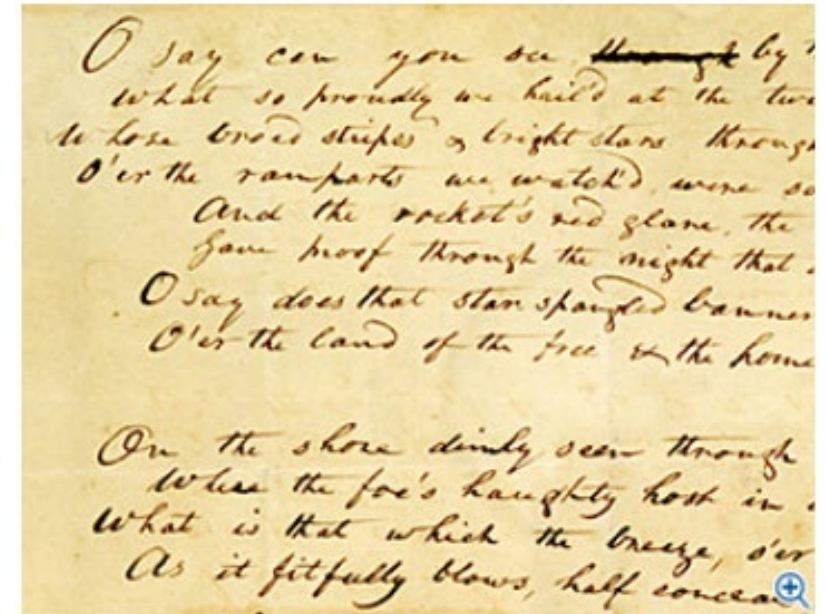 O say can you see through by
What so proudly we hail'd at the
Whose broad stripes & bright stars through
O'er the ramparts we watch'd, were so
And the rocket's red glare, the
Gave proof through the night that
O say does that star spangled banner
O'er the land of the free & the home
On the shore dimly seen through
Where the foe's haughty host in
What is that which the breeze, o'er
As it fitfully blows, half